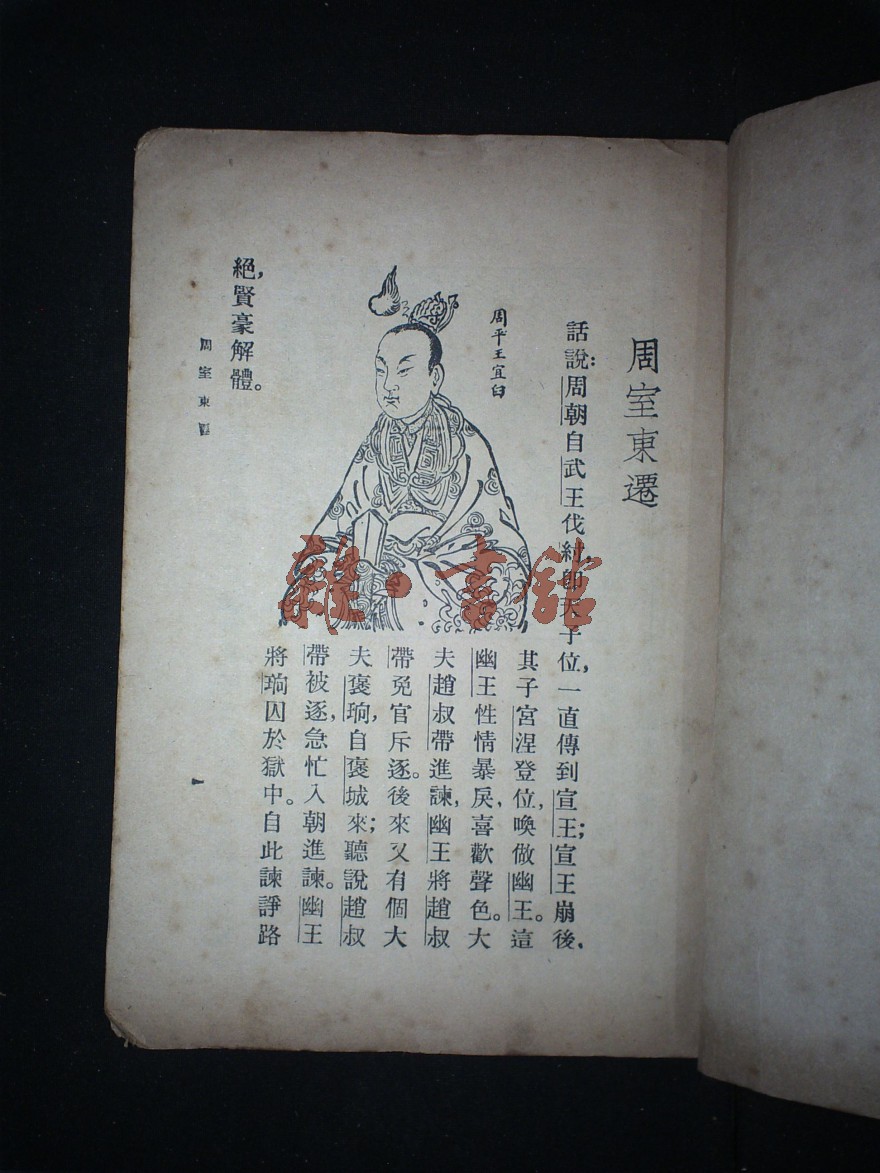 周室東遷
話說：周朝自武王伐紂，卽天子位，一直傳到宣王；宣王崩後，
其子宮涅登位，喚做幽王。這
幽王性情暴戾，喜歡聲色。大
夫趙叔帶進諫，幽王將趙叔
帶免官斥逐。後來又有個大
夫褒珦，自褒城來；聽說趙叔
帶被逐，急忙入朝進諫。幽王
將珦囚於獄中。自此諫諍路
絕，賢豪解體。
周平王宜臼
周室東遷
一
雜·書館